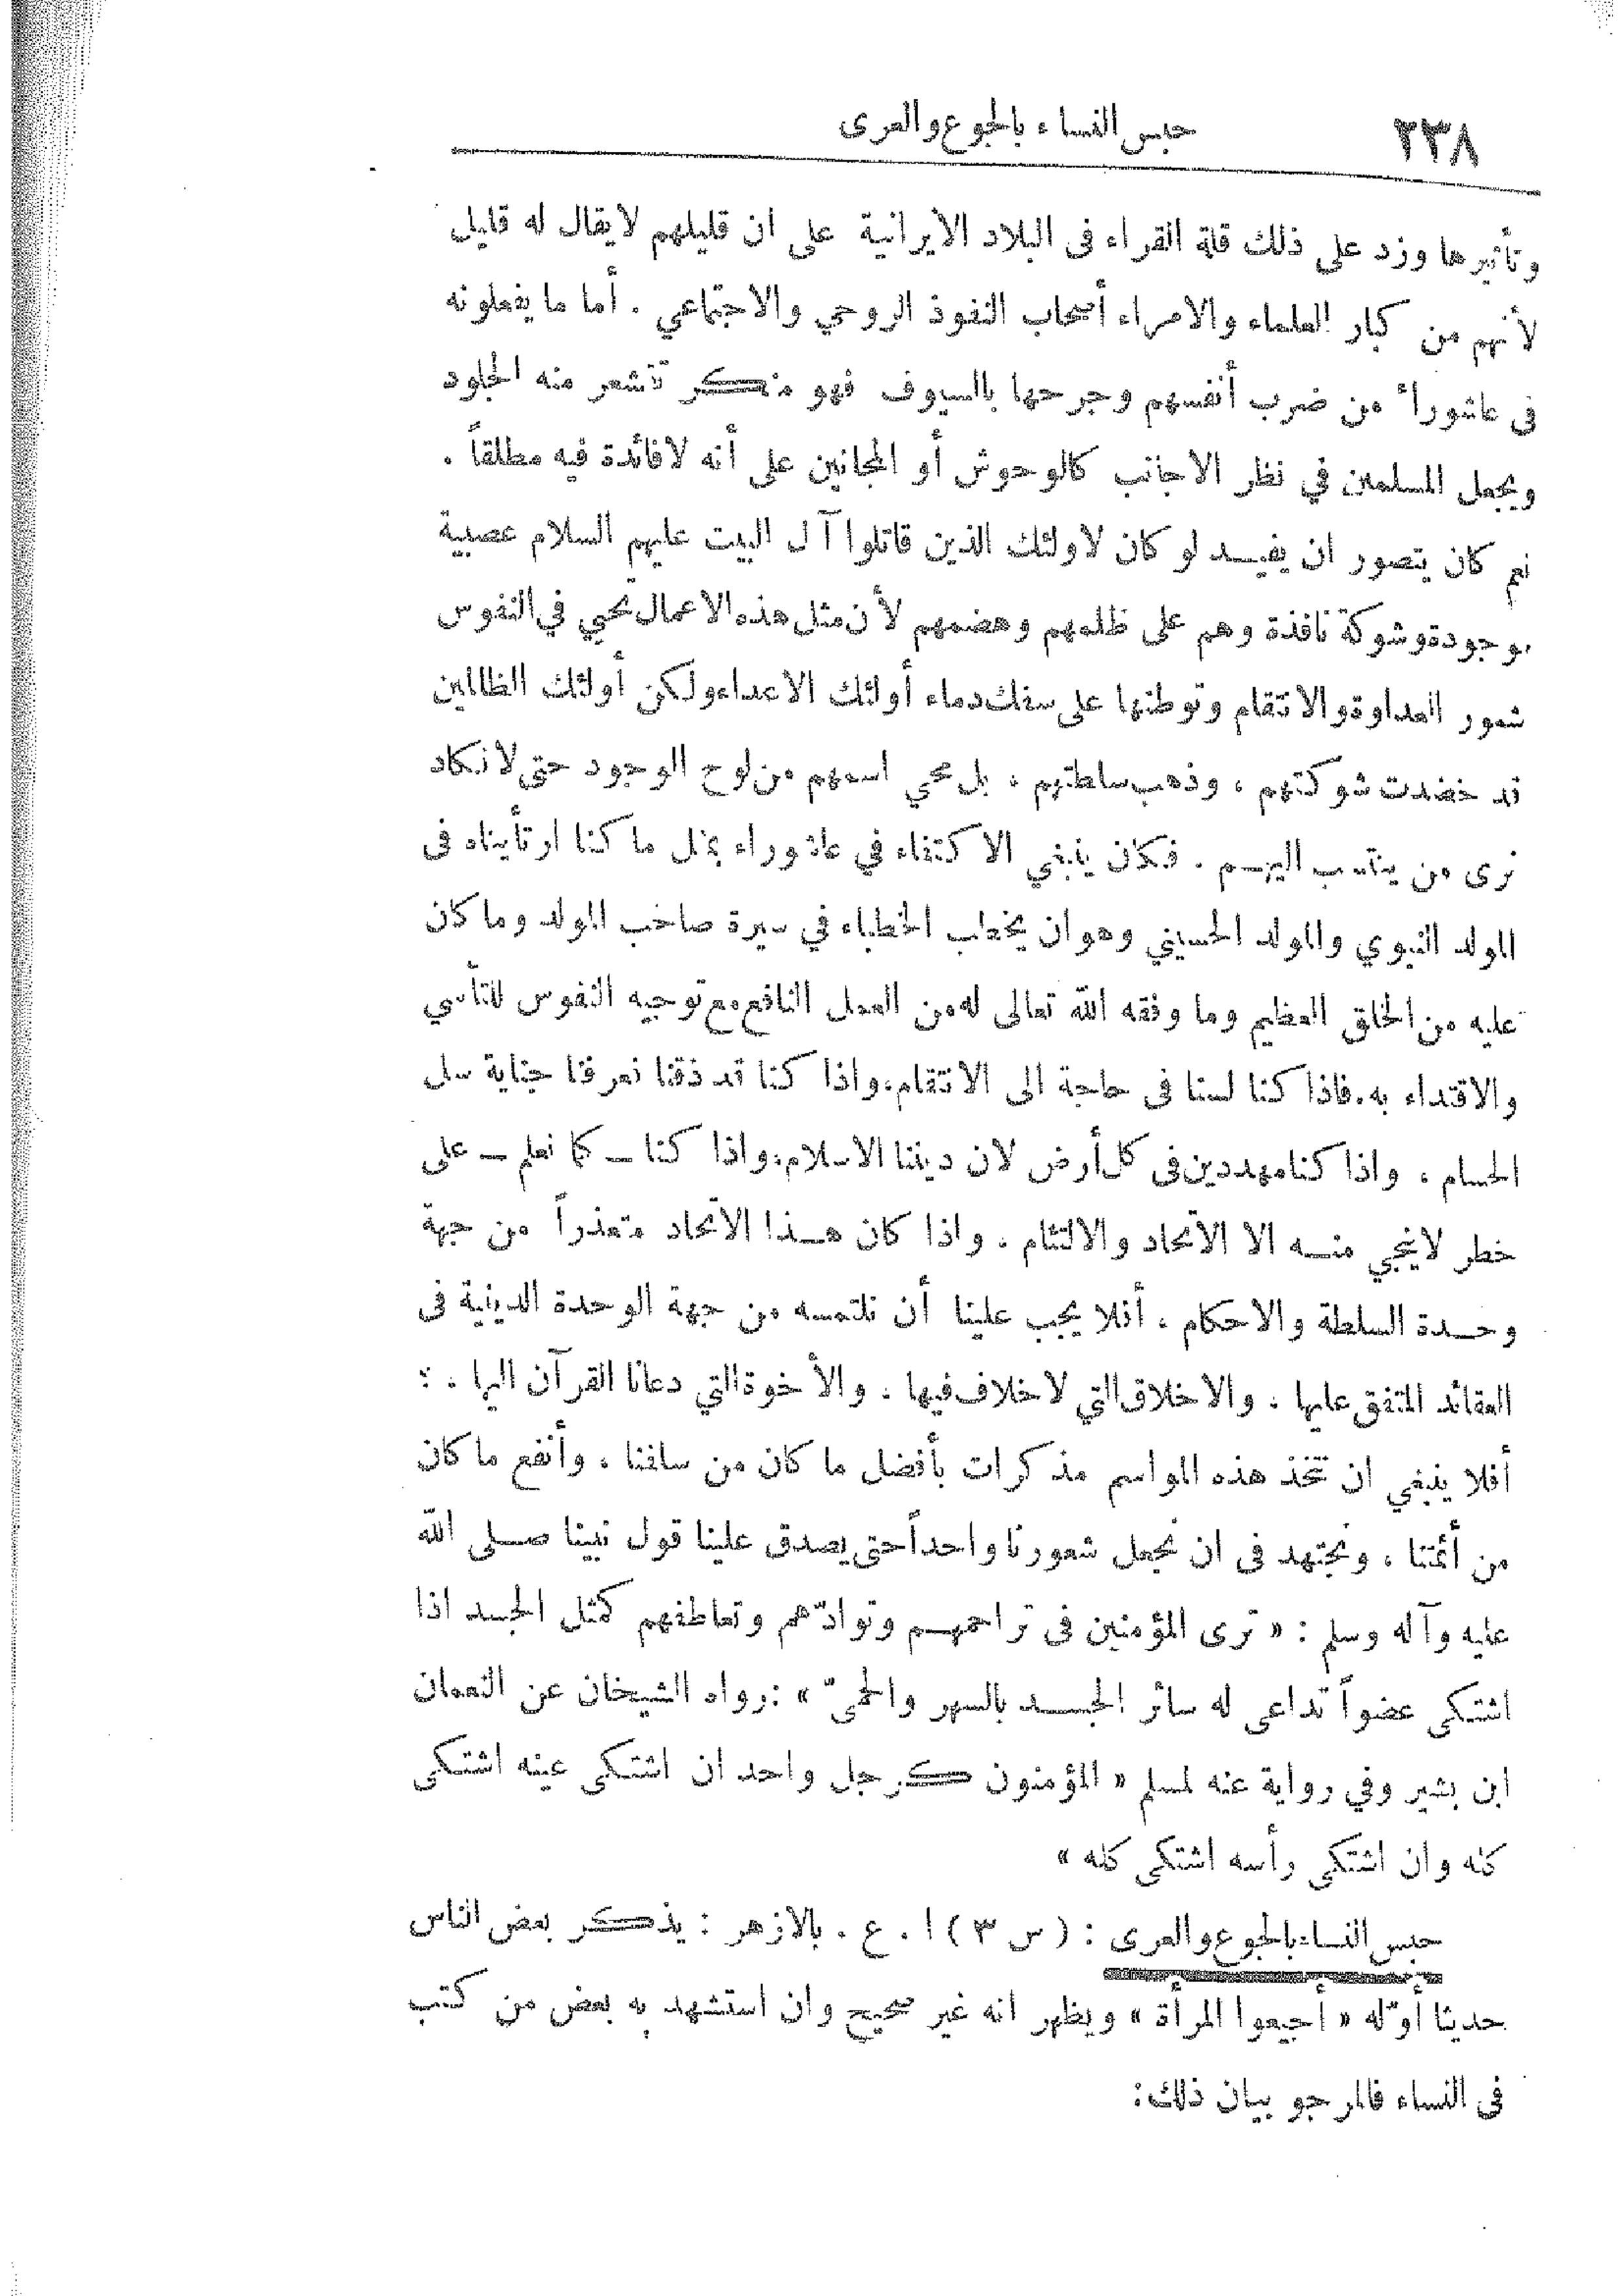 ٢٣٨
حبس النساء بالجوع والعرى
وتأثيرها وزد على ذلك قلة القراء فى البلاد الايرانية على ان قليلهم لا يقال له قليل
لأنهم من كبار العلماء والامراء أصحاب النفوذ الروحي والاجتماعي . أما ما يفعلونه
فى عاشوراء من ضرب أنفسهم وجرحها بالسيوف فهو منكر تقشعر منه الجلود
ويجعل المسلمين في نظر الاجانب كالوحوش أو المجانين على أنه لا فائدة فيه مطلقاً .
نعم كان يتصور ان يفيد لو كان لاولئك الذين قاتلوا آل البيت عليهم السلام عصبية
موجودة وشوكة نافذة وهم على ظلمهم وهضمهم لأن مثل هذه الاعمال تحيي في النفوس
شعور العداوة والانتقام وتوطنها على سفك دماء أولئك الاعداء ولكن أولئك الظالمين
قد خضدت شوكتهم ، وذهب سلطتهم ، بل محي اسمهم من لوح الوجود حتى لا نكاد
نرى من ينتسب اليهم . فكان ينبغي الاكتفاء في عاشوراء بمثل ما كنا ارتأيناه فى
المولد النبوي والمولد الحسيني وهو ان يخطب الخطباء في سيرة صاحب المولد وما كان
عليه من الخلق العظيم وما وفقه الله تعالى له من العمل النافع مع توجيه النفوس للتأسي
والاقتداء به . فاذا كنا لسنا فى حاجة الى الانتقام ، واذا كنا قد ذقنا نعرفنا جناية سل
الحسام ، واذا كنا مهددين فى كل أرض لان ديننا الاسلام ، واذا كنا — كما نعلم — على
خطر لا ينجي منه الا الاتحاد والالتئام ، واذا كان هذا الاتحاد متعذراً من جهة
وحدة السلطة والاحكام ، أفلا يجب علينا أن نلتمسه من جهة الوحدة الدينية فى
العقائد المتفق عليها ، والاخلاق التي لا خلاف فيها ، والأخوة التي دعانا القرآن اليها ، :
أفلا ينبغي ان نتخذ هذه المواسم مذكرات بأفضل ما كان من سلفنا ، وأنفع ما كان
من أئمتنا ، ونجتهد فى ان نجعل شعورنا واحداً حتى يصدق علينا قول نبينا صلى الله
عليه وآله وسلم : « ترى المؤمنين فى تراحمهم وتوادّهم وتعاطفهم كمثل الجسد اذا
اشتكى عضواً تداعى له سائر الجسد بالسهر والحمىّ » : رواه الشيخان عن النعمان
ابن بشير وفي رواية عنه لمسلم « المؤمنون كرجل واحد ان اشتكى عينه اشتكى
كله وان اشتكى رأسه اشتكى كله »
حبس النساء بالجوع والعرى : ( س ٣ ) ا . ع . بالازهر : يذكر بعض الناس
حديثا أوّله « أجيعوا المرأة » ويظهر انه غير صحيح وان استشهد به بعض من كتب
فى النساء فالمرجو بيان ذلك :